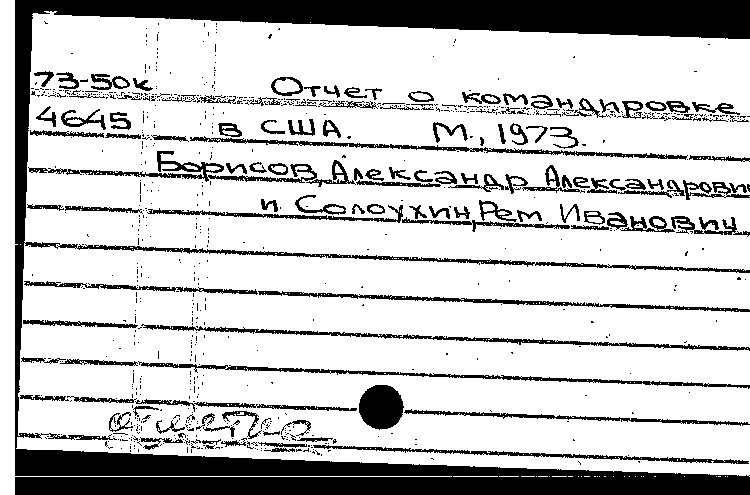 73-50к Отчет о командировке
4645 в США. М., 1973.
Борисов, Александр Александрови
и Солоухин, Рем Иванович
отметка